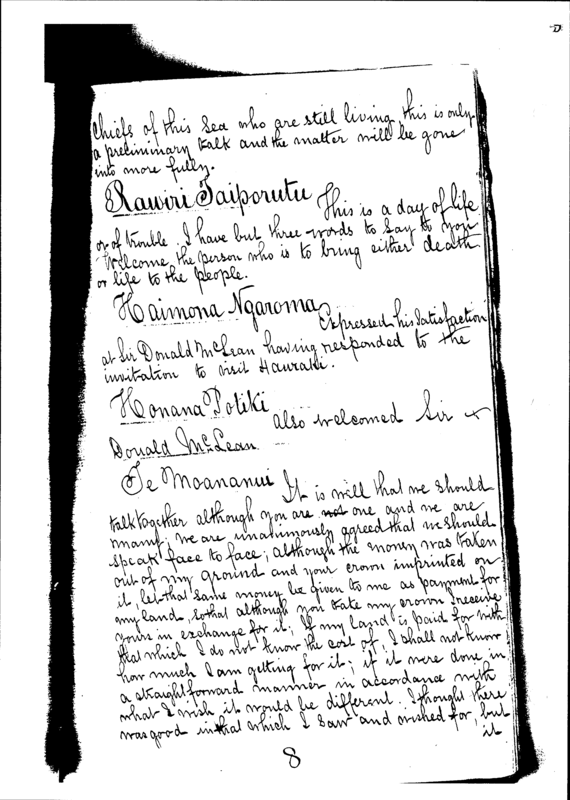 D
Chiefs of this Sea who are still living, this is only
a preliminary talk and the matter will be gone
into more fully.
Rawiri Taiporutu This is a day of life
or of trouble. I have but three words to say to you
Welcome the person who is to bring either death
or life to the people.
Haimona Ngaroma Expressed his Satisfaction
at Sir Donald McLean having responded to the
invitation to visit Hauraki.
Honana Potiki also welcomed Sir
Donald McLean
Te Moananui It is well that we should
talk together although you are not one and we are
many; we are unanimously agreed that we should
speak face to face; although the money was taken
out of my ground and your crown imprinted on
it, let that same money be given to me as payment for
my land, so that although you take my crown I receive
yours in exchange for it; If my land is paid for with
that which I do not know the cost of, I shall not know
how much I am getting for it; if it were done in
a straightforward manner in accordance with
what I wish it would be different. I thought there
was good in that which I saw and wished for, but
it
8